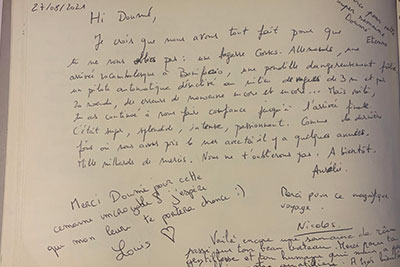 27/08/2021
Hi Doumé,
Je crois que nous avons tout fait pour que
tu ne nous oublies pas : une bagarre Corses - Allemands, une
arrivée rocambolesque à Bonifacio, une poudille dangereusement frôlée
un pilote automatique désactivé au milieu de de 3 m et par
20 noeuds, des erreurs de manoeuvre encore et encore... Mais voilà,
tu as continué à nous faire confiance jusqu'à l'arrivée finale.
C'était super, splendide, intense, passionnant. Comme la dernière
fois où nous avons pris la mer avec toi il y a quelques années.
Mille milliards de mercis. Nous ne t'oublierons pas. A bientôt.
Aurélie
Merci Doumé pour cette
semaine incroyable j'espère
que mon leurre te portera chance :)
Louis ♡
pour cette
super semaine
Doumé
Etienne
Merci pour ce magnifique
voyage.
Nicolas
Voilà encore une semaine de rêve
passée sur ton beau bateau. Merci pour ta
gentillesse et ton humour qui nous a
quotidien. A très bientôt